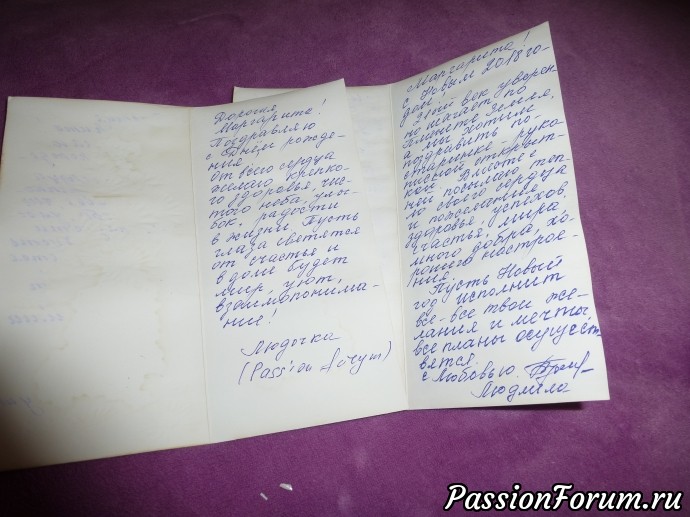 Дорогая
Маргарита!
Поздравляю
с Днём рожде-
ния!
От всего сердца
желаю крепко-
го здоровья, чис-
того неба, улы-
бок, радости
в жизни. Пусть
глаза светятся
от счастья и
в доме будет
мир, уют,
взаимопонима-
ние!
Людочка
(Passion Forum)
Маргарита!
с Новым 2018 го-
дом!
21ый век уверен-
но шагает по
планете Земле,
а мы хотим
поздравить по-
старинке - руко-
писной открыт-
кой. Вместе с
ней посылаю теп-
ло своего сердца
и пожелания
здоровья, успехов
счастья, мира
много добра, хо-
рошего настрое-
ния.
Пусть Новый
год исполнит
все-все твои же-
лания и мечты,
все планы осущест-
вятся.
с Любовью
Людмила
PassionForum.ru